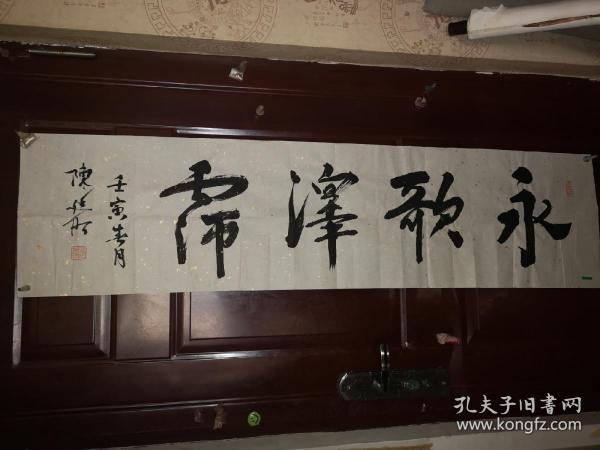 永歌澤霈
壬寅春月
陳
孔夫子旧書网
www.kongfz.com